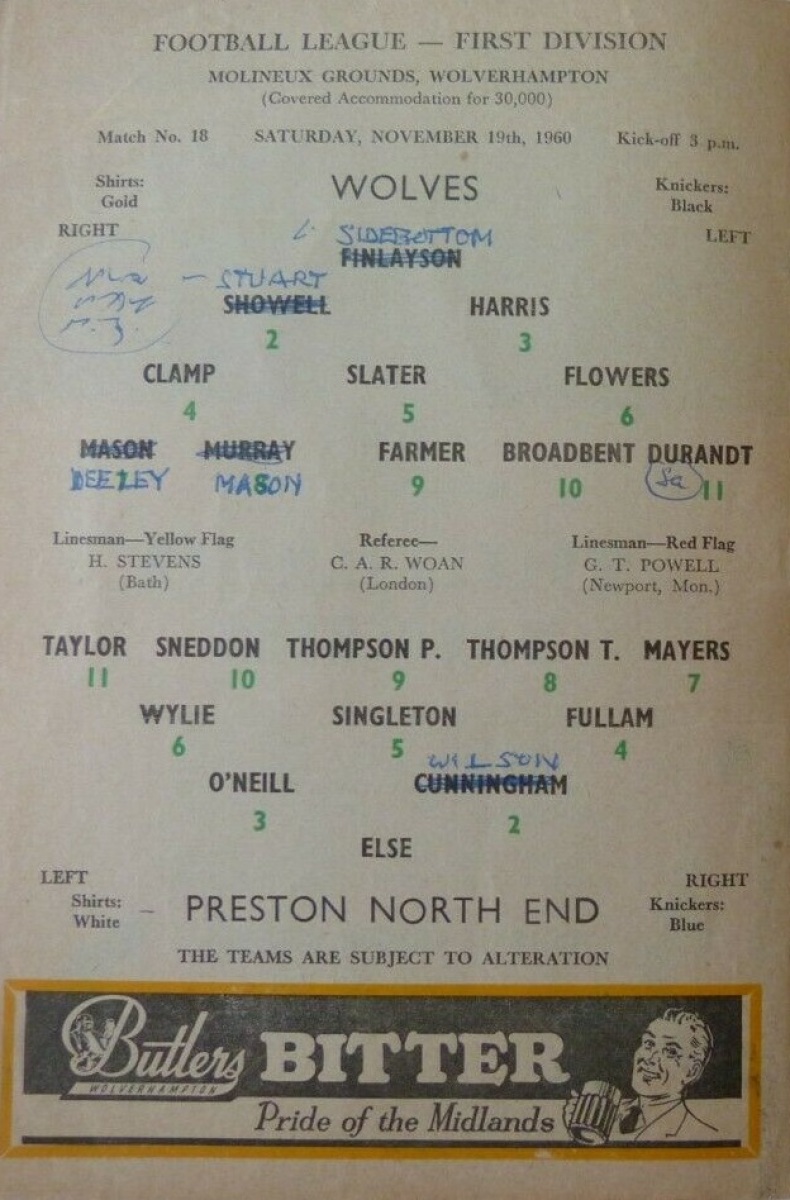 FOOTBALL LEAGUE — FIRST DIVISION
MOLINEUX GROUNDS, WOLVERHAMPTON
(Covered Accommodation for 30,000)
Match No. 18 SATURDAY, NOVEMBER 19th, 1960 Kick-off 3 p.m.
Shirts: Gold WOLVES Knickers: Black
RIGHT LEFT
SIDEBOTTOM
FINLAYSON
STUART
SHOWELL HARRIS
2 3
CLAMP SLATER FLOWERS
4 5 6
MASON MURRAY FARMER BROADBENT DURANDT
DEELEY MASON
7 8 9 10 11
Linesman—Yellow Flag Referee— Linesman—Red Flag
H. STEVENS C. A. R. WOAN G. T. POWELL
(Bath) (London) (Newport, Mon.)
TAYLOR SNEDDON THOMPSON P. THOMPSON T. MAYERS
11 10 9 8 7
WYLIE SINGLETON FULLAM
6 5 4
WILSON
O'NEILL CUNNINGHAM
3 2
ELSE
LEFT RIGHT
Shirts: White – PRESTON NORTH END Knickers: Blue
THE TEAMS ARE SUBJECT TO ALTERATION
Butlers BITTER
WOLVERHAMPTON
Pride of the Midlands